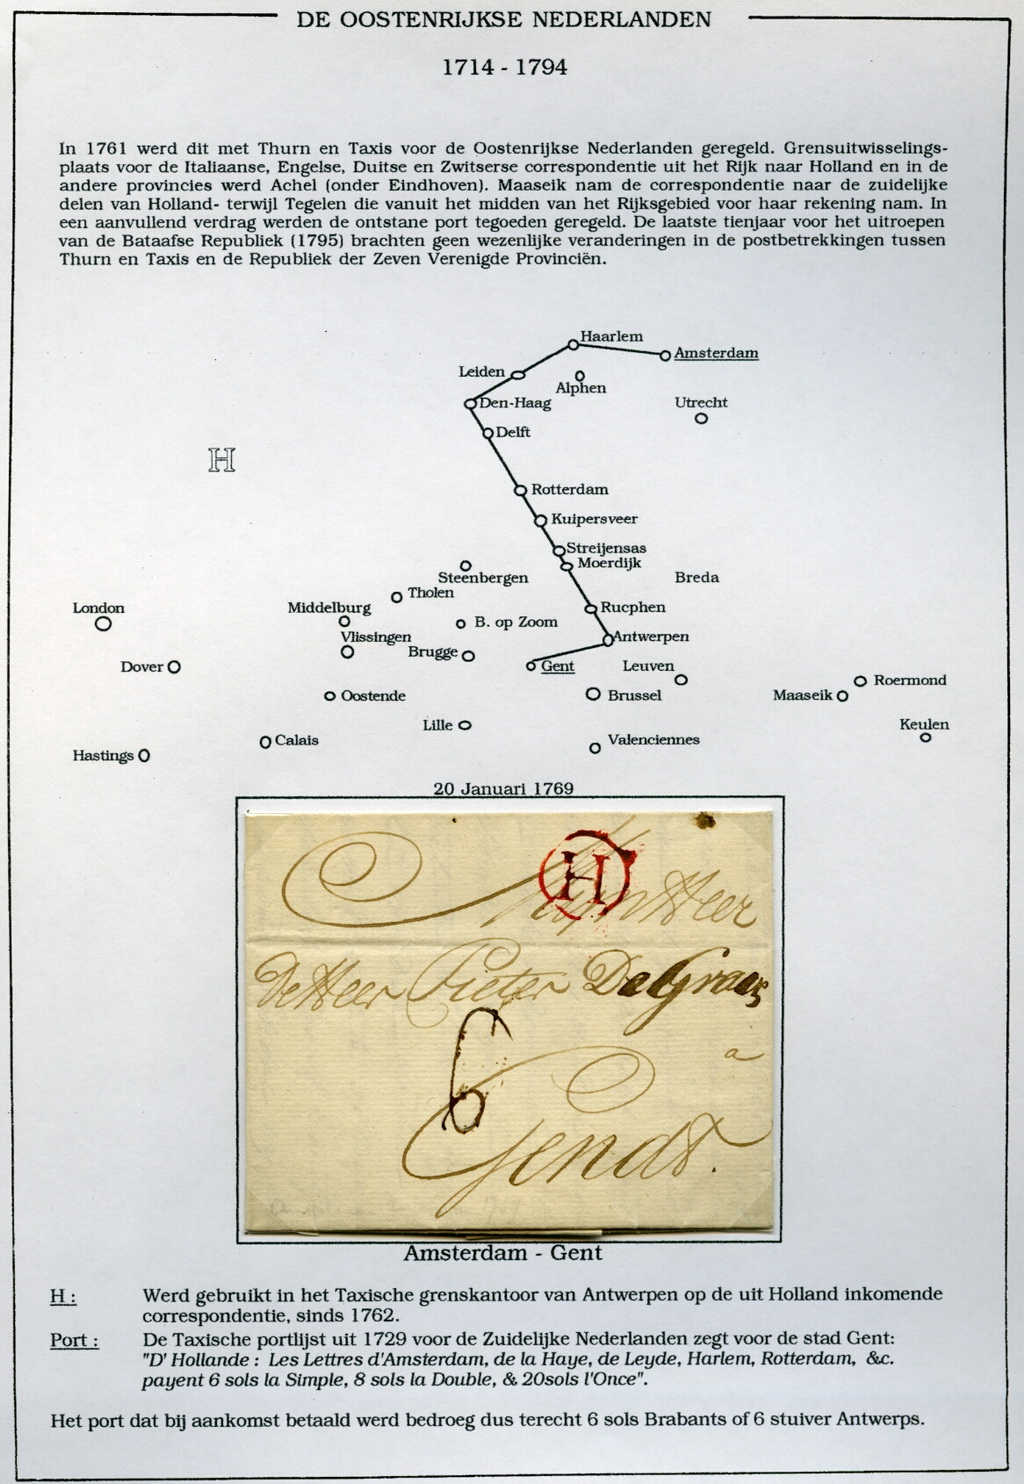 DE OOSTENRIJKSE NEDERLANDEN
1714 - 1794
In 1761 werd dit met Thurn en Taxis voor de Oostenrijkse Nederlanden geregeld. Grensuitwisselings-
plaats voor de Italiaanse, Engelse, Duitse en Zwitserse correspondentie uit het Rijk naar Holland en in de
andere provincies werd Achel (onder Eindhoven). Maaseik nam de correspondentie naar de zuidelijke
delen van Holland- terwijl Tegelen die vanuit het midden van het Rijksgebied voor haar rekening nam. In
een aanvullend verdrag werden de ontstane port tegoeden geregeld. De laatste tienjaar voor het uitroepen
van de Bataafse Republiek (1795) brachten geen wezenlijke veranderingen in de postbetrekkingen tussen
Thurn en Taxis en de Republiek der Zeven Verenigde Provinciën.
Haarlem
Amsterdam
Leiden
Alphen
Den-Haag
Utrecht
Delft
H
Rotterdam
Kuipersveer
Streijensas
Moerdijk
Steenbergen
Breda
Tholen
London
Middelburg
Rucphen
B. op Zoom
Vlissingen
Antwerpen
Brugge
Dover
Gent
Leuven
Roermond
Oostende
Brussel
Maaseik
Lille
Keulen
Calais
Valenciennes
Hastings
20 Januari 1769
H
Mijn Heer
De Heer Pieter De Graes
a
6
Gendt.
Amsterdam - Gent
H : Werd gebruikt in het Taxische grenskantoor van Antwerpen op de uit Holland inkomende
correspondentie, sinds 1762.
Port : De Taxische portlijst uit 1729 voor de Zuidelijke Nederlanden zegt voor de stad Gent:
"D' Hollande : Les Lettres d'Amsterdam, de la Haye, de Leyde, Harlem, Rotterdam, &c.
payent 6 sols la Simple, 8 sols la Double, & 20sols l'Once".
Het port dat bij aankomst betaald werd bedroeg dus terecht 6 sols Brabants of 6 stuiver Antwerps.